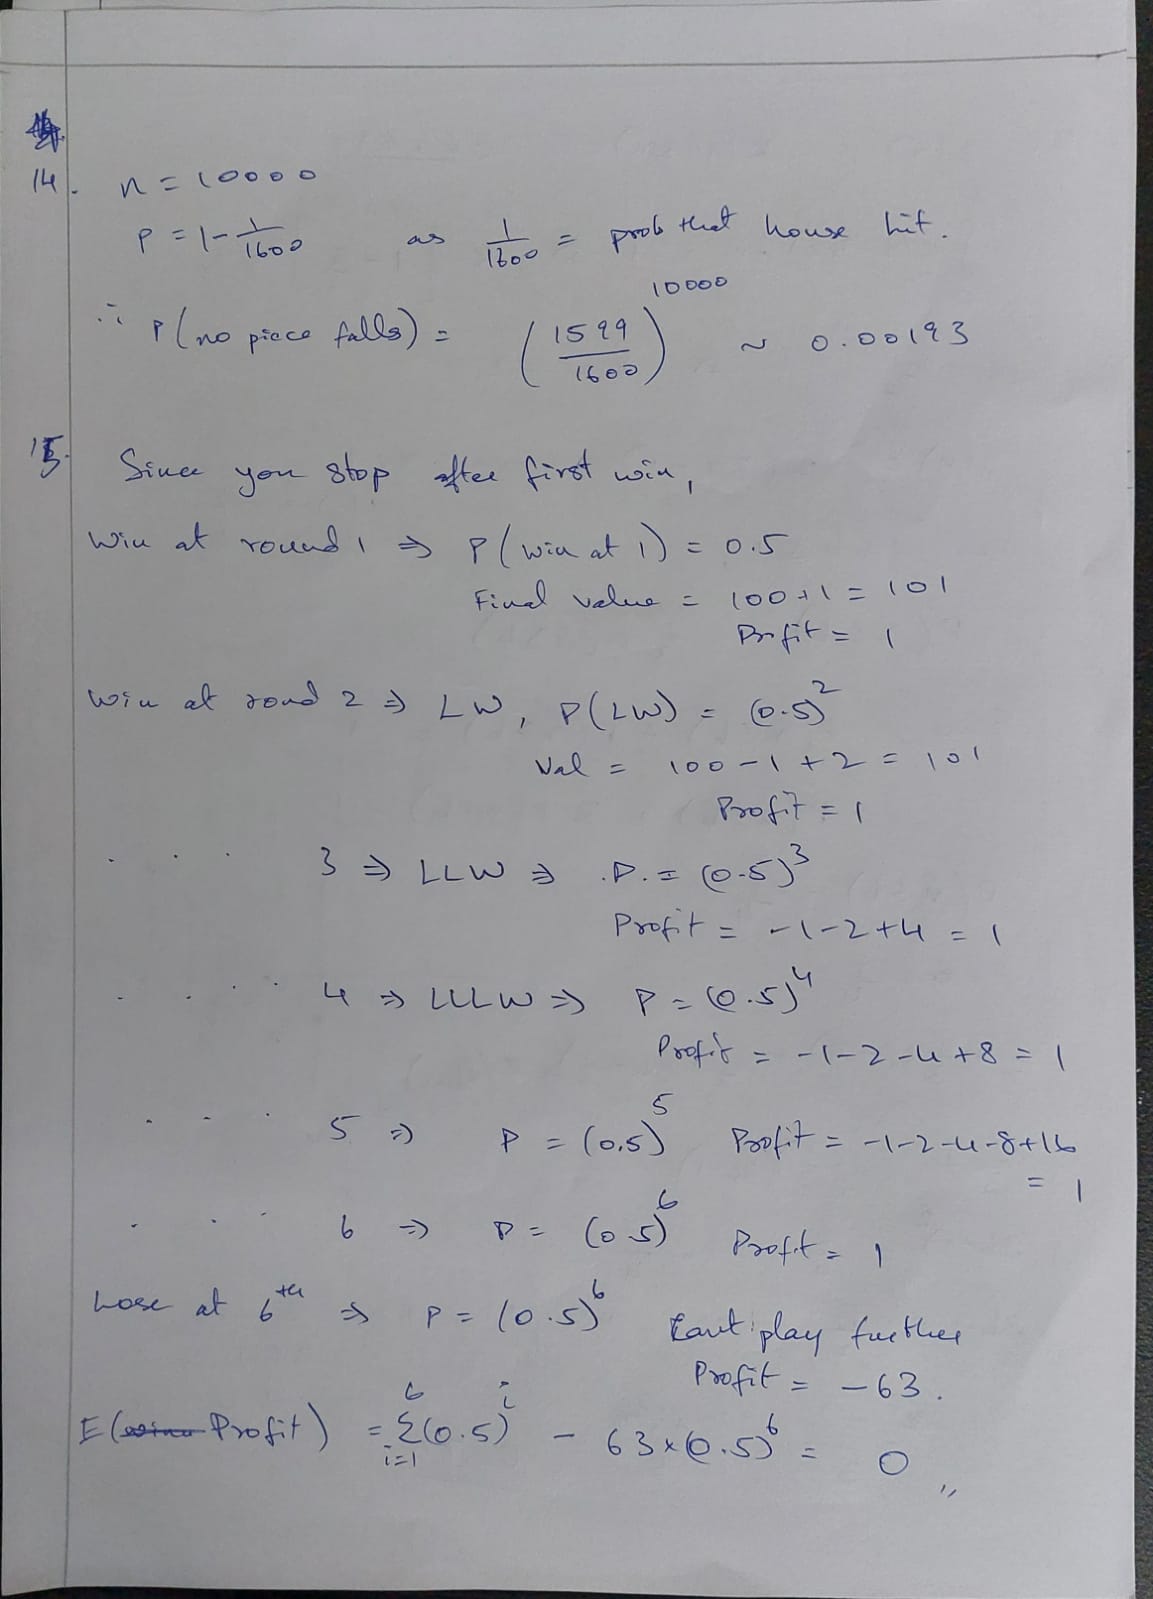 14. n = 10000
p = 1 - 1/1600 as 1/1600 = prob that house hit.
∴ P(no piece falls) = (1599/1600)^10000 ~ 0.00193
15. Since you stop after first win,
Win at round 1 ⇒ P(win at 1) = 0.5
Final value = 100+1 = 101
Profit = 1
Win at round 2 ⇒ LW, P(LW) = (0.5)^2
Val = 100 - 1 + 2 = 101
Profit = 1
. . . 3 ⇒ LLW ⇒ P = (0.5)^3
Profit = -1-2+4 = 1
. . . . 4 ⇒ LLLW ⇒ P = (0.5)^4
Profit = -1-2-4+8 = 1
. . . 5 ⇒ P = (0.5)^5 Profit = -1-2-4-8+16
= 1
. . . 6 ⇒ P = (0.5)^6 Profit = 1
Lose at 6th ⇒ P = (0.5)^6 Cant play further
Profit = -63.
E(Profit) = Σ_{i=1}^{6} (0.5)^i - 63×(0.5)^6 = 0 〃